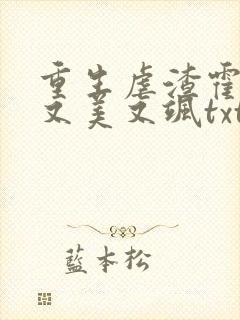 重生虐渣霍
又美又飒txt
藍本松